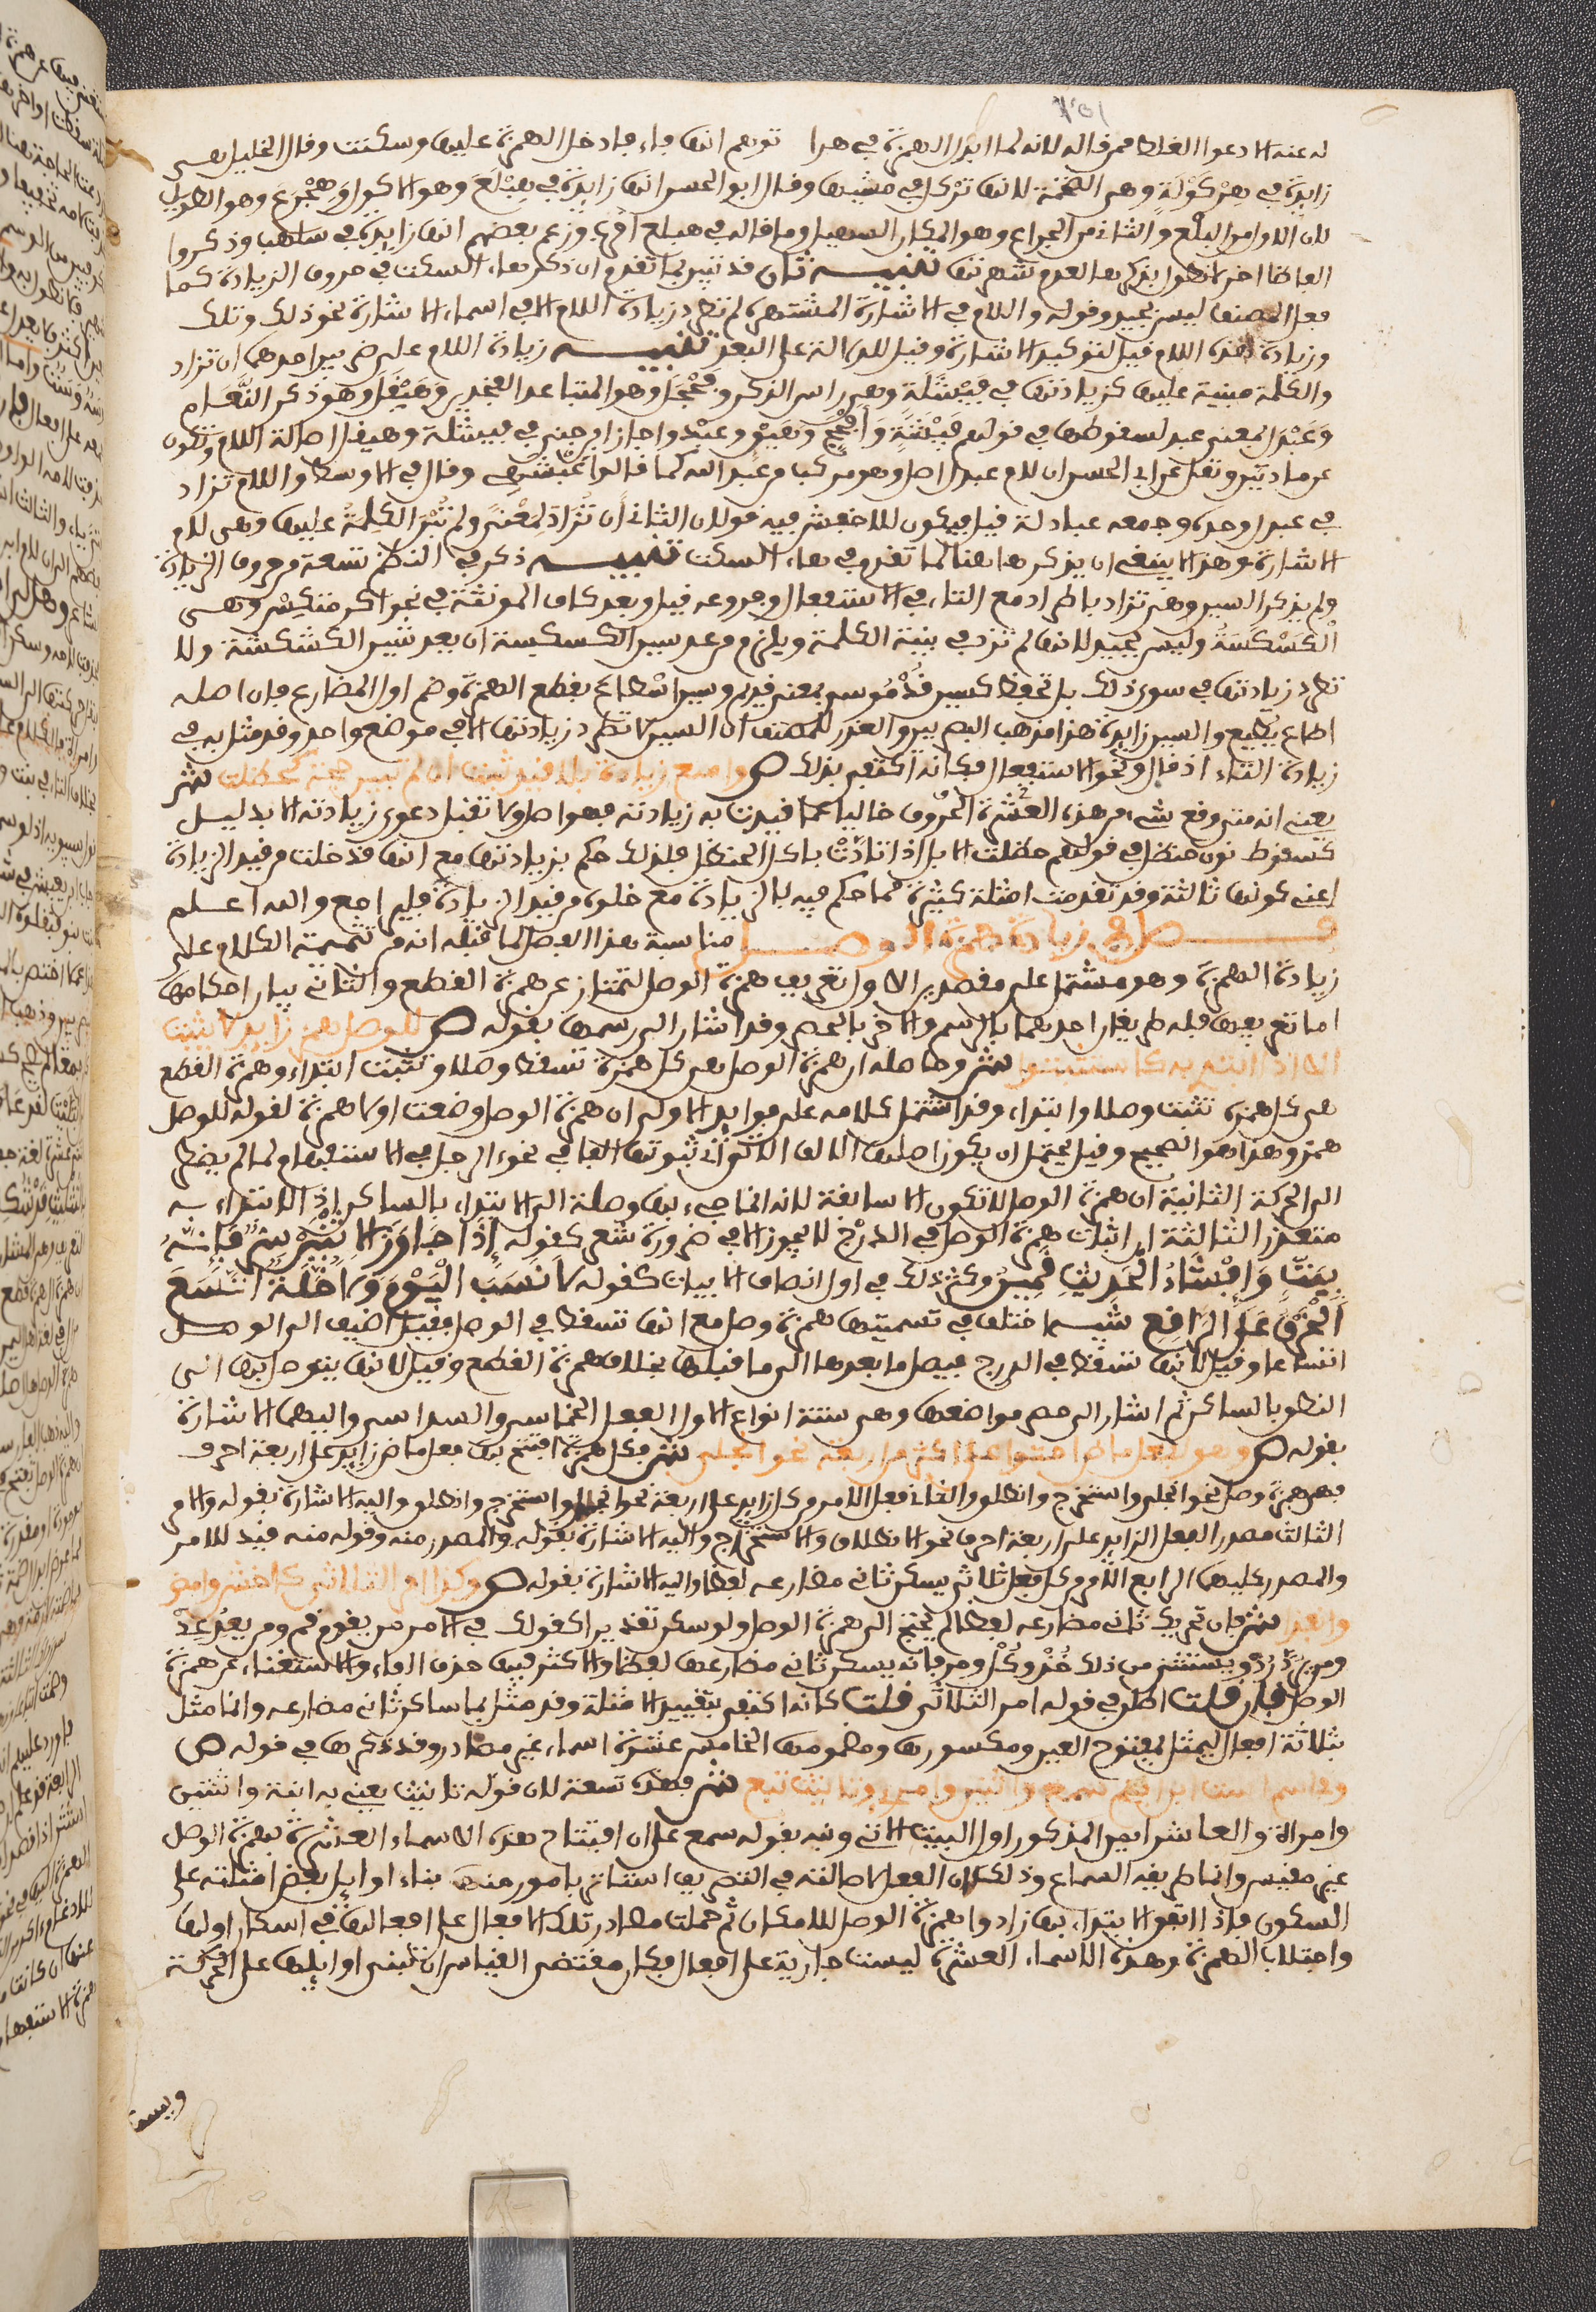 له عنه الا دعوا الغلط ممن قاله لانه لما ابدل الهمزة في هذا توهم انها فاء فادخل الهمزة عليها وسكنت وقال الخليل هي
زايدة في هركولة وهي الضخمة لانها تركل في مشيها وقال ابو الحسن انها زايدة في هبلع وهو الاكول وهجرع وهو الطويل
لان الاول من البلع والثاني من الجرع وهو المكان السهل وما قاله في هبلع اقوى وزعم بعضهم انها زايدة في سلهب وذكروا
الفاظا اخر لا نطول بذكرها لعدم شهرتها تنبيه ثان قد تبين بما تقدم ان ذكر هاء السكت في حروف الزيادة كما
فعل المصنف ليس بجيد وقوله واللام في الاشارة المشتهره لم تطرد زيادة اللام الا في اسماء الاشارة نحو ذلك وتلك
وزيادة هذه اللام قيل لتوكيد الاشارة وقيل للدلالة على البعد تنبيه زيادة اللام على ضربين احدهما ان تزاد
والكلمة مبنية عليها كزيادتها في فيشلة وهي راس الذكر وفحجل وهو المتباعد الفخذين وهيقل وهو ذكر النعام
وعبدل بمعنى عبد لسقوطها في قولهم فيشة وافحج وهيق وعبد واجاز ابن جني في فيشلة وهيقل اصالة اللام وتكون
من مادتين ونقل عن ابي الحسن ان لام عبدل اصل وهو مركب من عبد الله كما قالوا عبشمي وقال في الاوسط واللام تزاد
في عبدل وحده وجمعه عبادلة قيل فيكون للاخفش فيه قولان الثاني ان تزاد لمعنى ولم تبن الكلمة عليها وهي لام
الاشارة وهذا لا ينبغي ان يذكر هاهنا لما تقدم في هاء السكت تنبيه ذكر في النظم تسعة من حروف الزيادة
ولم يذكر السين وهي تزاد باطراد مع التاء في الاستفعال وفروعه قيل وبعد كاف المونثة في نحو اكرمتكس وهي
الكسكسة وليس بجيد لانها لم تزد في بنية الكلمة ويلزم من عد سين الكسكسة ان يعد شين الكشكشة ولا
تطرد زيادتها في سوى ذلك بل تحفظ كسين قدموس بمعنى قديم وسين اسطاع بقطع الهمزة وضم اول المضارع فان اصله
اطاع يطيع والسين زايدة هذا مذهب البصريين والعذر للمصنف ان السين لا تطرد زيادتها الا في موضع واحد وقد مثل به في
زيادة التاء اذ قال ونحو الاستفعال فكانه اكتفى بذلك ص وامنع زيادة بلا قيد ثبت ان لم تبين حجة كحظلت ش
يعني انه متى وقع شيء من هذه العشرة الحروف خاليا عما قيدت به زيادته فهو اصل ولا تقبل دعوى زيادته الا بدليل
كسقوط نون حنظل في قولهم حظلت الابل اذا تاذت باكل الحنظل فلذلك حكم بزيادتها مع انها قد خلت من قيد الزيادة
اعني كونها ثالثة وقد تقدمت امثلة كثيرة مما حكم فيه بالزيادة مع خلوه من قيد الزيادة فليراجع والله اعلم
فصل في زيادة همزة الوصل مناسبة هذا الفصل لما قبله انه من تتميمة الكلام على
زيادة الهمزة وهو مشتمل على مقصدين الاول تعريف همزة الوصل لتمتاز عن همزة القطع والثاني بيان احكامها
اما تعريفها فله طريقان احدهما بالرسم والاخر بالحصر وقد اشار الى رسمها بقوله ص للوصل همز زايد لا يثبت
الا اذا ابتدي به كاستثبتوا ش وحاصله ان همزة الوصل هي كل همزة تسقط وصلا وتثبت ابتداء وهمزة القطع
هي كل همزة تثبت وصلا وابتداء وقد اشتمل كلامه على فوايد الاولى ان همزة الوصل وضعت اولا همزة لقوله للوصل
همز وهذا هو الصحيح وقيل يحتمل ان يكون اصلها الالف الا ترى ثبوتها الفا في نحو الرجل في الاستفهام لما لم يضطر
الى الحركة الثانية ان همزة الوصل لا تكون الا سابقة لانه انما جيء بها وصلة الى الابتداء بالساكن اذ الابتداء به
متعذر الثالثة ان اثبات همزة الوصل في الدرج لا يجوز الا في ضرورة شعر كقوله اذا جاوز الاثنين سر فانه
ببث وافشاء الحديث قمين وكثر ذلك في اول انصاف الابيات كقوله لا نسب اليوم ولا خلة اتسع
الخرق على الراقع تنبيه اختلف في تسميتها همزة وصل مع انها تسقط في الوصل فقيل اضيف الى الوصل
اتساعا وقيل لانها تسقط في الدرج فيصل ما بعدها الى ما قبلها بخلاف همزة القطع وقيل لانها يتوصل بها الى
النطق بالساكن ثم اشار الى حصر مواضعها وهي ستة انواع الاول الفعل الخماسي والسداسي واليهما الاشارة
بقوله ص وهو لفعل ماض احتوى على اكثر من اربعة نحو انجلى ش فكل همزة افتتح بها فعل ماض زايد على اربعة احرف
فهي همزة وصل نحو انجلى واستخرج وانطلق والثاني فعل الامر من كل زايد على اربعة نحو انجل واستخرج وانطلق واليه الاشارة بقوله والامر
الثالث مصدر الفعل الزايد على اربعة احرف نحو الانطلاق والاستخراج واليه الاشارة بقوله والمصدر منه وقوله منه قيد للامر
والمصدر كليهما الرابع الامر من كل فعل ثلاثي يسكن ثاني مضارعه لفظا واليه الاشارة بقوله ص وكذا امر الثلاثي كاخش وامض
وانفذا ش فان تحرك ثاني مضارعه لفظا لم يحتج الى همزة الوصل ولو سكن تقديرا كقولك في الامر من يقوم قم ومن يعد عد
ومن يرد رد ويستثنى من ذلك خذ وكل ومر فانه يسكن ثاني مضارعها لفظا والاكثر فيها حذف الفاء والاستغناء عن همزة
الوصل فان قلت اطلق في قوله امر الثلاثي قلت كانه اكتفى بتقييد الامثلة وقد مثل بما ساكن ثاني مضارعه وانما مثل
بثلاثة افعال ليمثل بمفتوح العين ومكسورها ومضمومها الخامس عشرة اسماء غير مصادر وقد ذكرها في قوله ص
وفي اسم است ابن ابنم سمع واثنين وامرئ وتانيث تبع ش فهذه تسعة لان قوله تانيث يعني به ابنة واثنتين
وامراة والعاشر ايمن المذكور اول البيت الاتي ونبه بقوله سمع على ان افتتاح هذه الاسماء العشرة بهمزة الوصل
غير مقيس وانما طريقه السماع وذلك لان الفعل لاصالته في التصريف استاثر بامور منها بناء اوايل بعض امثلته على
السكون فاذا اتفق الابتداء بها زادوا همزة الوصل للامكان ثم حملت مصادر تلك الافعال على افعالها في اسكان اولها
واجتلاب الهمزة وهذه الاسماء العشرة ليست جارية على افعال فكان مقتضى القياس ان تبنى اوايلها على الحركة